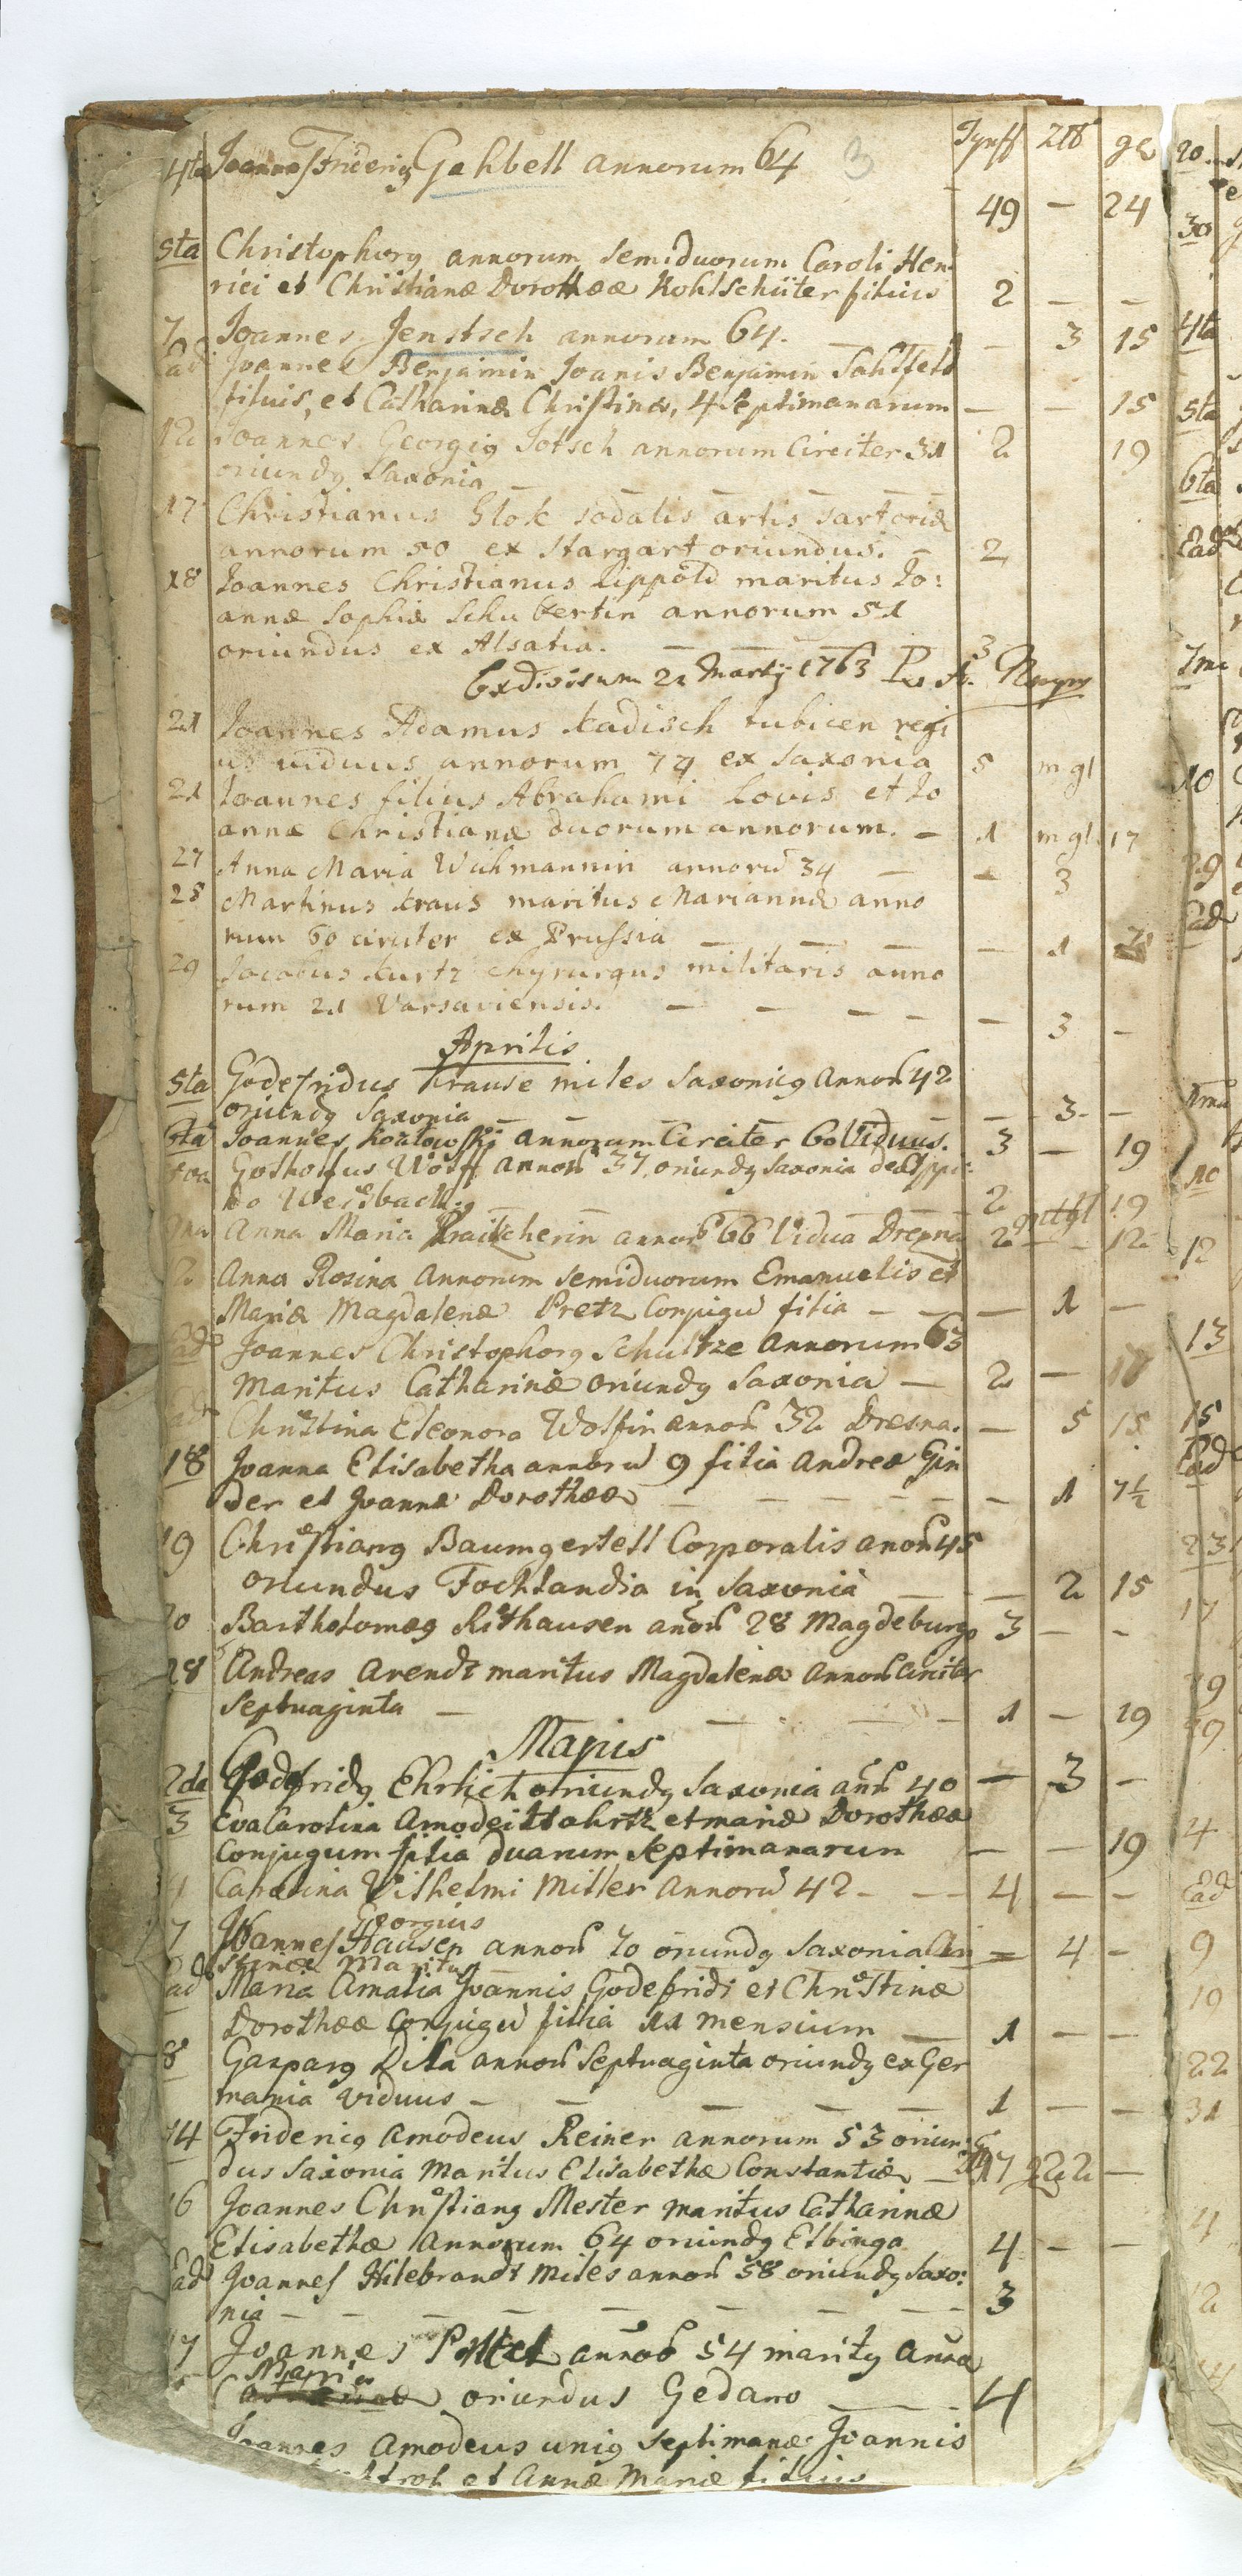 Tynff Zł gl
4ta Joannes Frideric9 Gahbell annorum 64 3
49 — 24
5ta Christophor9 annorum semiduorum Caroli Hen-
rici et Christianæ Dorotheæ Kohlschüter filius 2 — —
7 Joannes Jenstsch annorum 64. — — 3 15
Ead Joannes Benjamin Joanis Benjamin Sahlfeld
filius, et Catharinæ Christinæ, 4 Septimanarum — — 15
12 Joannes Georgi9 Totsch annorum Circiter 31 2 19
oriund9 Saxonia
17 Christianus Glok sodalis artis sartoriæ
annorum 50 ex Stargart oriundus. — 2
18 Joannes Christianus Lippold maritus Jo:
annæ Sophiæ Schubertin annorum 51
oriundus ex Alsatia. — — — 3
Exdivisum 21 Martij 1763
21 Joannes Adamus Kadisch tubicen regi
us viduus annorum 74 ex Saxonia 5 mgl
21 Joannes filius Abrahami Lovis et Jo
annæ Christianæ duorum annorum. — 1 mgl 17
27 Anna Maria Wichmannin annorū 34 — — 3
28 Martinus Kraus maritus Mariannæ anno
rum 60 circiter ex Prussia — — — — 1
29 Jacobus Kurtz chyrurgus militaris anno
rum 21 Varsaviensis. — — — — — 3 —
Aprilis
5ta Godefridus Krause miles Saxonic9 Annor 42
oriund9 Saxonia — — — — 3 —
6ta Joannes annorum Circiter 60 Viduus. 3 — 19
Gotholfus Wolff Annor 37 oriund9 Saxonia de Oppi-
do Weisbach. — — — 2 19
9na Anna Maria annor 66 Vidua Dresna 2 — 12
Anna Rosina Annorum semiduorum Emanuelis et
Mariæ Magdalenæ Pretz Conjugū filia — — — 1 —
Ead Joannes Christophor9 Schultze Annorum 63
maritus Catharinæ oriund9 Saxonia — 2 —
Christina Eleonora Wolfin annor 32 Dresna. — 5 15
18 Joanna Elisabetha annorū 9 filia Andreæ Gin
der et Joannæ Dorotheæ — — — — — — 1 7½
19 Christian9 Baumgertell Corporalis anor 45
oriundus Fochtlandia in Saxonia — — — 2 15
20 Bartholomæ9 Rithausen anor 28 Magdeburgo 3 — —
28 Andreas Arendt maritus Magdalenæ Annor Circiter
Septuaginta — — — — 1 — 19
Majus
2da Godfrid9 Ehrlich oriund9 Saxonia añor 40 — 3 —
3 Eva Carolina Amodei et mariæ Dorotheæ
Conjugum filia duarum Septimanarum — — 19
4 Carolina Wilhelmi Miller Annorū 42 — — — 4 — —
Georgius
7 Joannes Hausen annor 70 oriund9 Saxonia Chri = 4 —
stinæ Maritus
Ead Maria Amalia Joannis Godefridi et Christinæ
Dorotheæ Conjugū filia 11 mensium — 1 — —
8 Gaspar9 annor Septuaginta oriund9 ex Ger
mania Viduus — — — — — 1 — —
14 Frideric9 Amodeus Reiner annorum 53 oriun-
dus Saxonia Maritus Elisabethæ Constantiæ — 17 22 —
16 Joannes Christian9 Mester maritus Catharinæ
Elisabethæ Annorum 64 oriund9 Elbinga 4 — —
Ead Joannes Hilebrandt Miles annor 58 oriund9 Saxo:
nia — — — — — — — — 3
17 Joannes annor 54 marit9 Anna
Maria
oriundus Gedano — 4
Joannes Amodeus uni9 Septimanæ Joannis
et Annæ Mariæ filius